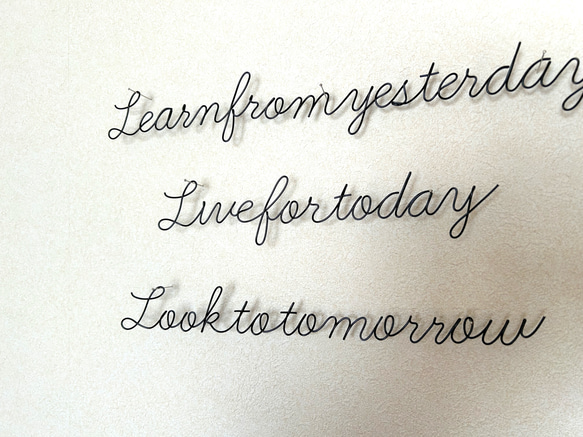 Learnfromyesterday
Livefortoday
Looktotomorrow